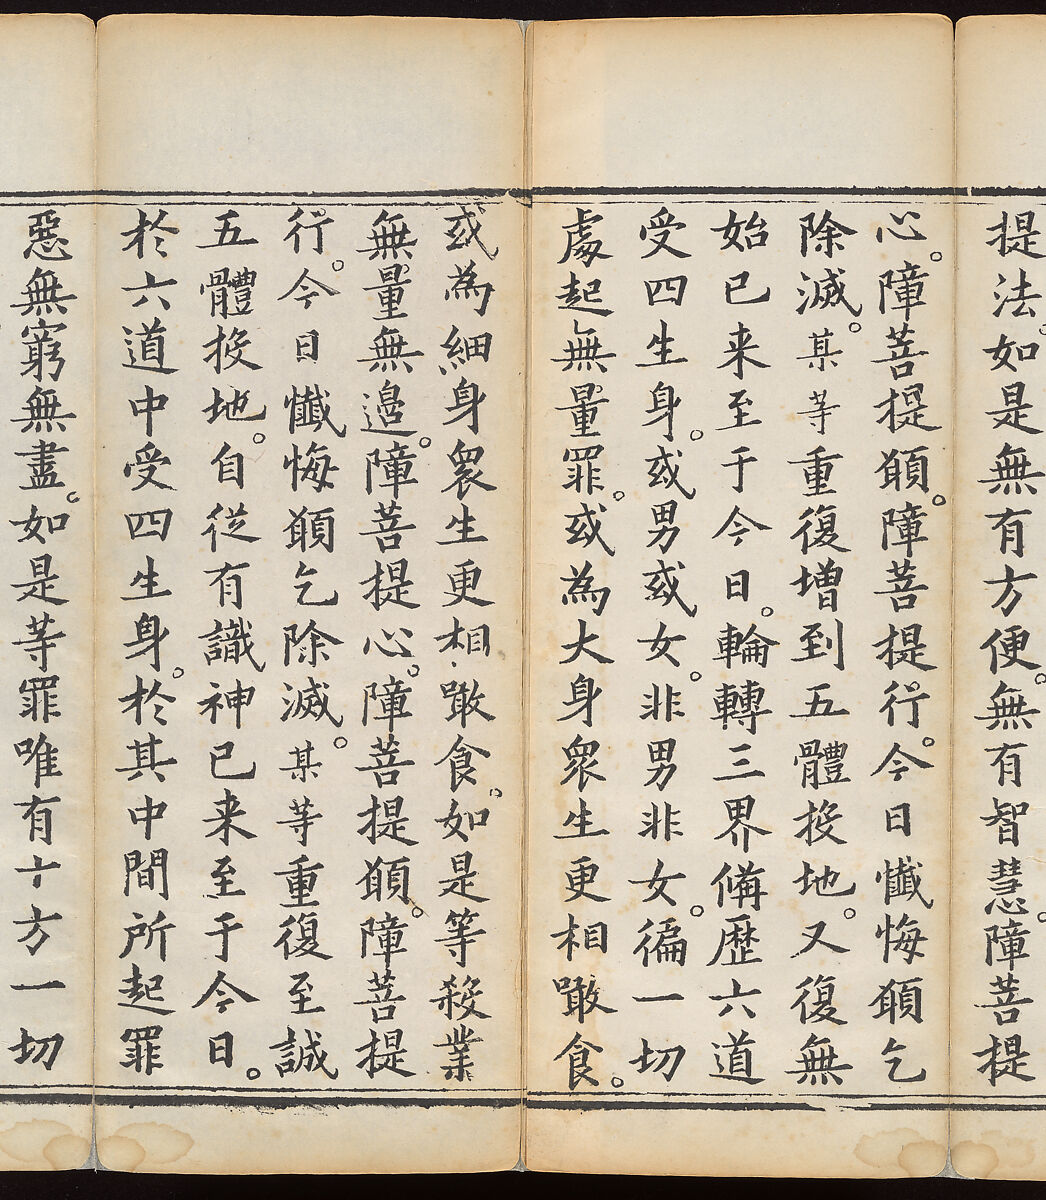 提法。如是無有方便。無有智慧。障菩提
心。障菩提願。障菩提行。今日懺悔願乞
除滅。某等重復增到五體投地。又復無
始已来至于今日。輪轉三界備歷六道
受四生身。或男或女。非男非女。徧一切
處起無量罪。或為大身衆生更相噉食。
或為細身衆生更相噉食。如是等殺業
無量無邊。障菩提心。障菩提願。障菩提
行。今日懺悔願乞除滅。某等重復至誠
五體投地。自從有識神已来至于今日。
於六道中受四生身。於其中間所起罪
惡無窮無盡。如是等罪唯有十方一切